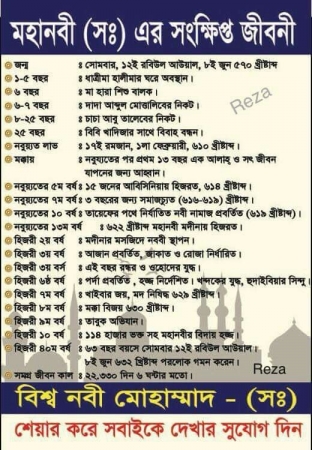 মহানবী (সঃ) এর সংক্ষিপ্ত জীবনী
জন্ম : সোমবার, ১২ই রবিউল আউয়াল, ৮ই জুন ৫৭০ খ্রীষ্টাব্দ
১-৫ বছর : ধাত্রীমা হালীমার ঘরে অবস্থান।
৬ বছর : মা হারা শিশু বালক।
৬-৭ বছর : দাদা আব্দুল মোত্তালিবের নিকট।
৮-২৫ বছর : চাচা আবু তালেবের নিকট।
২৫ বছর : বিবি খাদিজার সাথে বিবাহ বন্ধন।
নবুয়্যত লাভ : ১৭ই রমজান, ১লা ফেব্রুয়ারী, ৬১০ খ্রীষ্টাব্দ।
মক্কায় : নবুয়্যতের পর প্রথম ১৩ বছর এক আলাহ্ ও সৎ জীবন
যাপনের জন্য আহ্বান।
নবুয়্যতের ৫ম বর্ষ : ১৫ জনের আবিসিনিয়ায় হিজরত, ৬১৪ খ্রীষ্টাব্দ।
নবুয়্যতের ৭ম বর্ষ : ৩ বছরের জন্য সমাজচ্যুত (৬১৬-৬১৯) খ্রীষ্টাব্দ।
নবুয়্যতের ১০ বর্ষ : তায়েফের পথে নির্যাতিত নবী নামাজ প্রবর্তিত (৬১৯ খ্রীষ্টাব্দ)।
নবুয়্যতের ১৩ম বর্ষ : ৬২২ খ্রীষ্টাব্দ মহানবী মদীনায় হিজরত।
হিজরী ২য় বর্ষ : মদীনার মসজিদে নববী স্থাপন।
হিজরী ৩য় বর্ষ : আজান প্রবর্তিত, জাকাত ও রোজা নির্ধারিত।
হিজরী ৩য় বর্স : এই বছর রঙ্কর ও ওহোদের যুদ্ধ।
হিজরী ৬ষ্ঠ বর্ষ : পর্দা প্রবর্তিত, হজ্জ নির্দেশিত। খন্দকের যুদ্ধ, হুদাইবিয়ার সিন্দু।
হিজরী ৭ম বর্ষ : খাইবার জয়, মদ নিষিদ্ধ ৬২৯ খ্রীষ্টাব্দ।
হিজরী ৮ম বর্ষ : মক্কা বিজয় ৬৩০ খ্রীষ্টাব্দ।
হিজরী ৯ম বর্ষ : তাবুক অভিযান।
হিজরী ১০ বর্ষ : ১১৪ হাজার ভক্ত সহ মহানবীর বিদায় হজ্জ।
হিজরী ৪০ম বর্ষ : ৬৩ বছর বয়সে সোমবার ১২ই রবিউল আউয়াল।
৮ই জুন ৬৩২ খ্রিষ্টাব্দ পরলোক গমন করেন।
সমগ্র জীবন কাল : ২২,৩৩০ দিন ৬ ঘন্টার মতো।
Reza
Reza
বিশ্ব নবী মোহাম্মাদ - (সঃ)
শেয়ার করে সবাইকে দেখার সুযোগ দিন